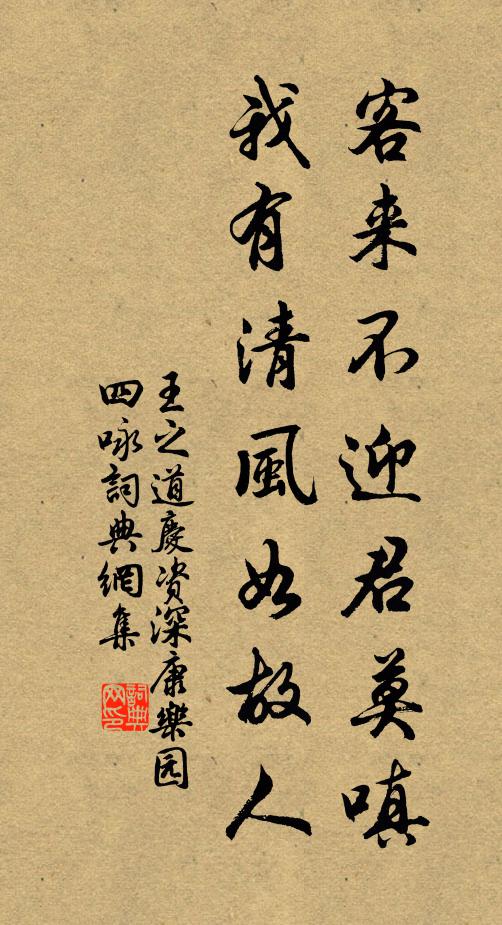 客来不迎君莫嗔
我有清風如故人
王之道慶资深康樂园
四咏詞典網集
詞典网印